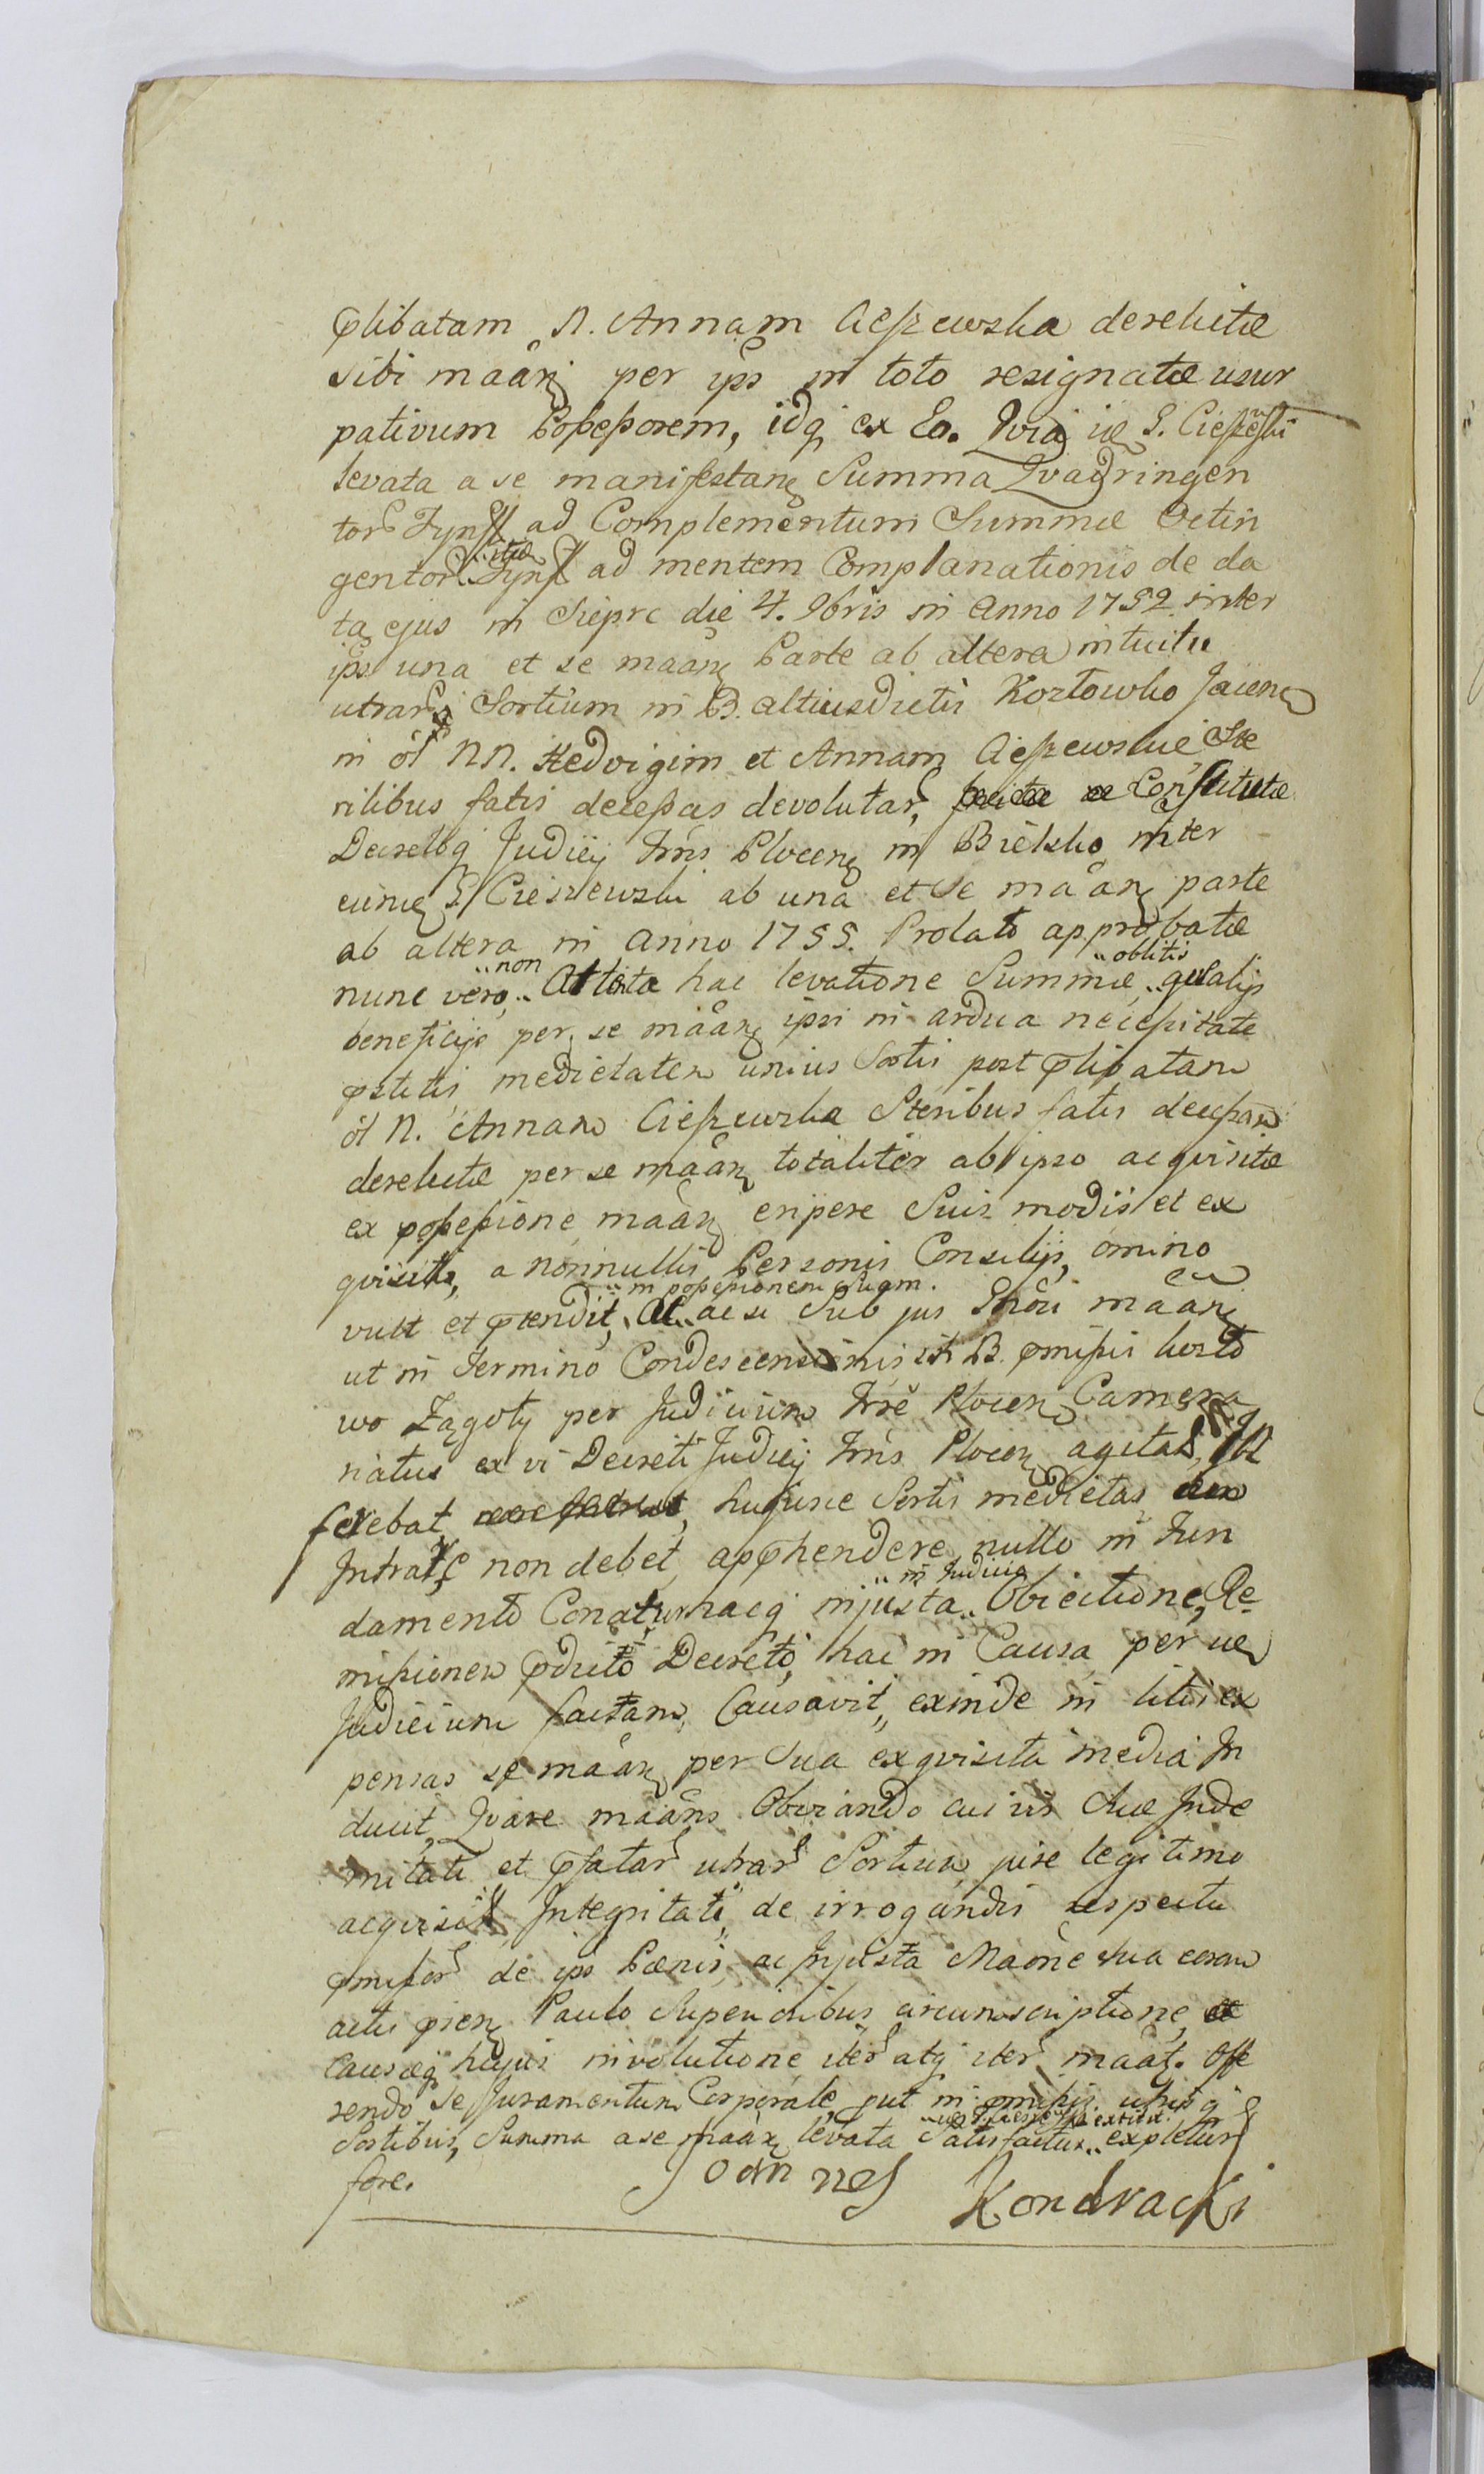 plibatam N. Annam Cieszewska derelictæ
sibi maāń per ips in toto resignatæ usur
pativum Possessorem, idq ex Eo. Qvia iæ G. Cieszewski
levata a se manifestanę Summa Qvadringen
tor Tynff ad Complementum Summæ Octin
gentor itid Tynff ad mentem Complanationis de da
ta ejus in Sieprc die 4. 9bris in Anno 1752 inter
ips una et se maāń Parte ab altera intuitu
utrarq Sortium in B. altiusdictis Kozłowko Jacen
in ol NN. Hedvigim et Annam Cieszewskie Ste
rilibus fatis decessas devolutar, Constitutæ
Decretoq Judicij Trris Plocen in Bielsko inter
eunde G. Cieszewski ab una et se maāń parte
ab altera in Anno 1755. Prolato approbatæ
nunc vero, „non Attenta hac levatione Summæ, „oblitis qe alijs
beneficijs per se maāń ipsi in ardua necessitate
pstitis, medietatem unius Sortis post plibatam
ol N. Annam Cieszewska Sterilibus fatis decessam
derelictæ per se maāń totaliter ab ipso acqvisitæ
ex possessione maāń eripere Suis modis et ex
qvisitis, a nonnullis Personis Consilijs, omino
vult et prendit, „in possessionem suam. ac si Sub jus maāń
ut in Termino Condescensionis in B. pmissis Kozło
wo Zagoty per Judicium Trre Plocen Camera
riatus ex vi Decreti Judicij Trris Plocen agitat,
ferebat hujusce Sortis medietas
Intrare non debet, apphendere nullo in Fun
damento Conatur hacq injusta „in Judicio Obiectione, Re-
missionem pdicto Decreto, hac in Causa per
Judicium factam, Causavit, exinde in litis ex
pensas se maāń per Sua exqvisita media In
ducit, Qvare maāns Obviando Suæ Inde
mnitati et pfatar utrar Sortium jure legitimo
acqvisit Integritati, de irrogandis respectu
pmissor de ips Pænis, ac Injusta Maōne sua coram
actis psen Paulo Superioribus circumscriptione,
Causæq hujus involutione iter atq iter maāt. Offe
rendo se Juramentum Corporale, put in pmissis utrisq
Sortibus, Summa a se maāń levata Satisfactus „ G. Cieszewski extitit. expletur
fore.
Joannes Kondracki